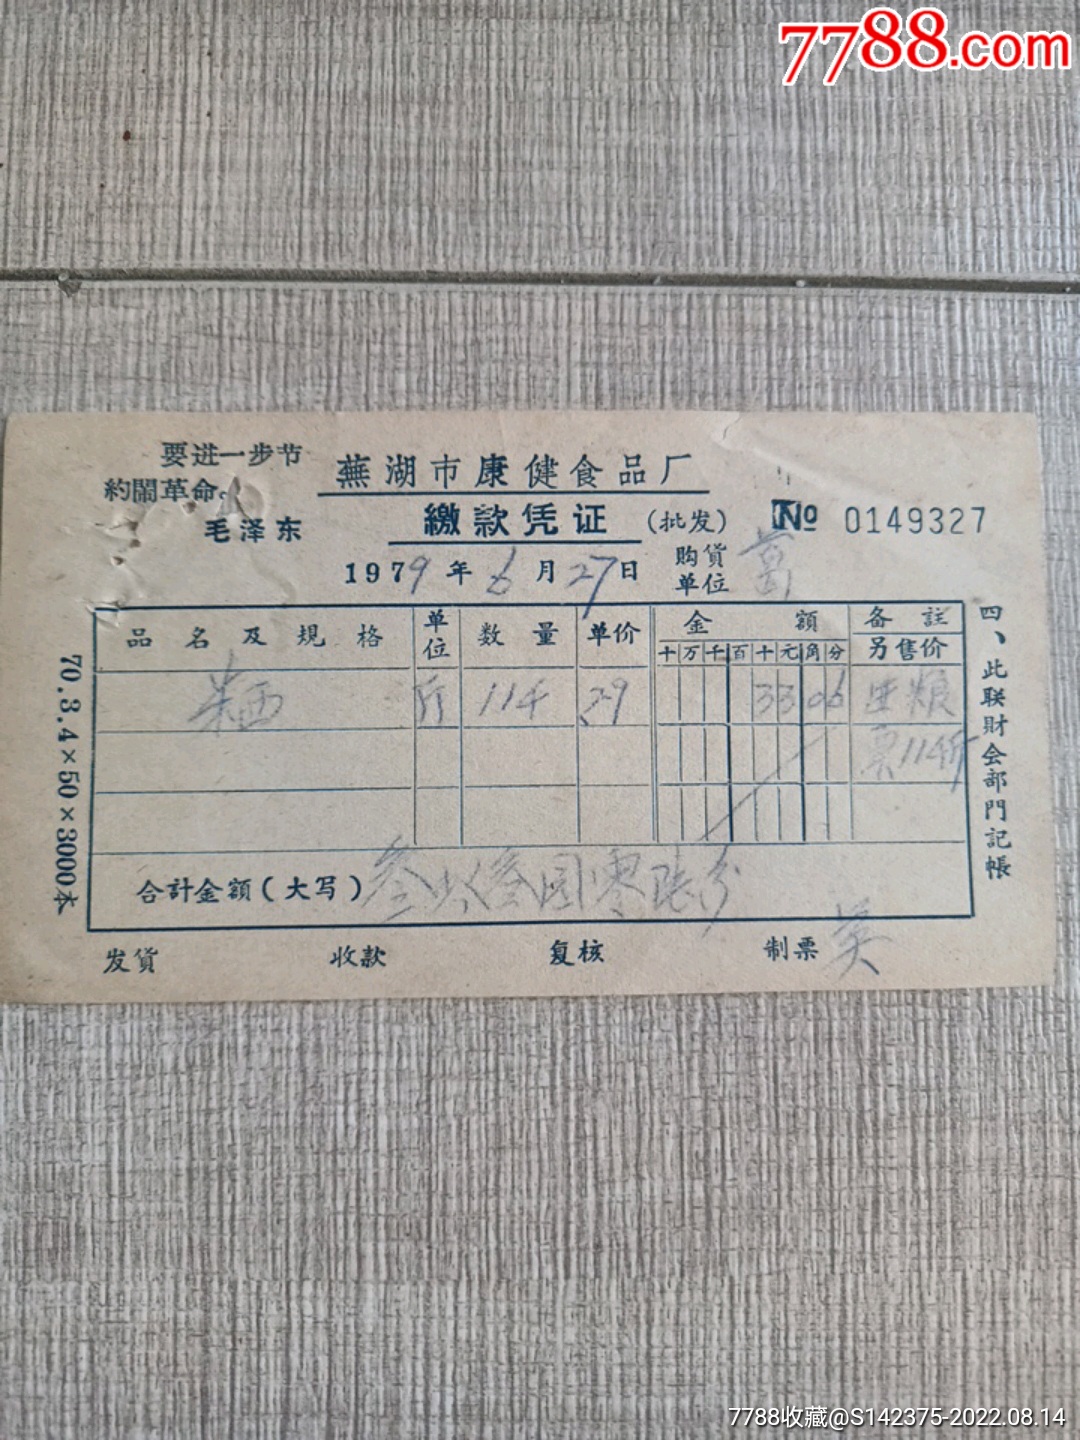 7788.com
要进一步节
約鬧革命。
毛泽东
蕪湖市康健食品厂
繳款凭证(批发)
№ 0149327
1979年6月27日
购货单位
品名及規格 单位 数量 单价 金額 备註
十万千百十元角分 另售价
斤 114 29 3306
票114斤
合計金額(大写) 叁拾叁圆零陆分
发货 收款 复核 制票 吴
四、此联財会部門記帳
70.3.4×50×3000本
7788收藏@S142375-2022.08.14